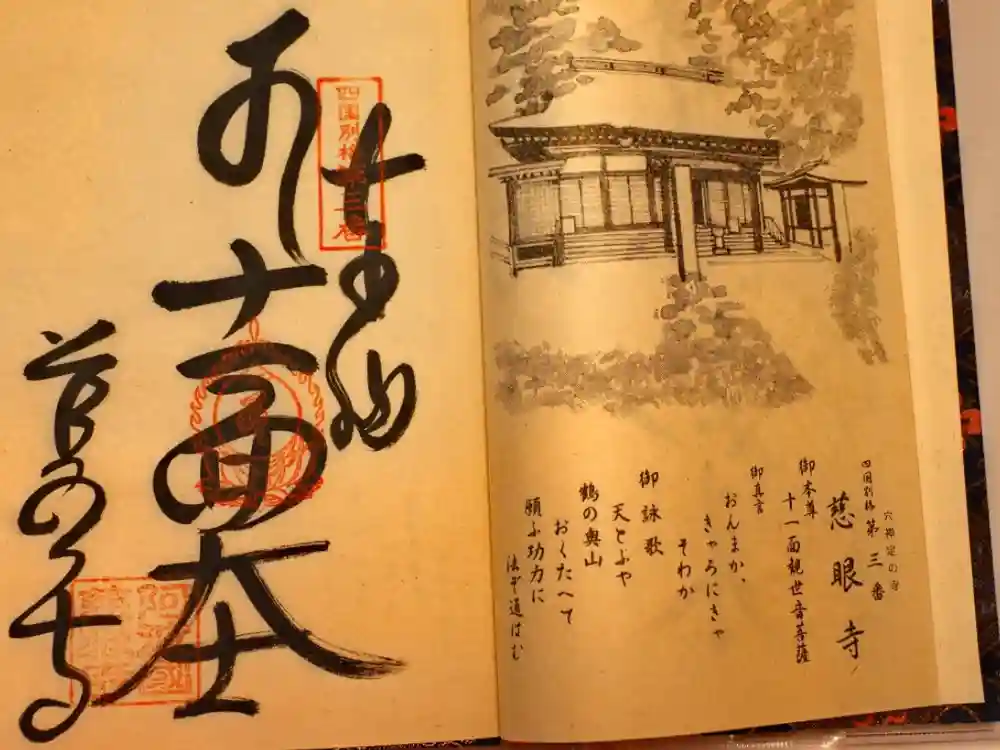 穴禅定の寺
四国別格 第三番
慈眼寺
御本尊
十一面観世音菩薩
御真言
おんまか、
きゃろにきゃ
そわか
御詠歌
天とぶや
鶴の奥山
おくたへて
願ふ功力に
四国別格第三番
十一面大士